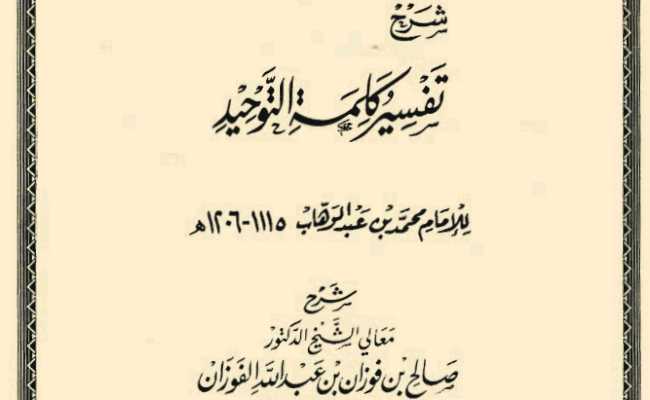 شَرْحُ
تَفْسِيرُ كَلِمَةِ التَّوْحِيدِ
لِلإِمَامِ مُحَمَّد بْن عَبْدِ الوَهَّاب ١١١٥-١٢٠٦هـ
شَرْحُ
مَعَالِي الشَّيْخِ الدّكتُور
صَالِح بْن فَوزَان بْن عَبْدِ اللهِ الفَوْزَان